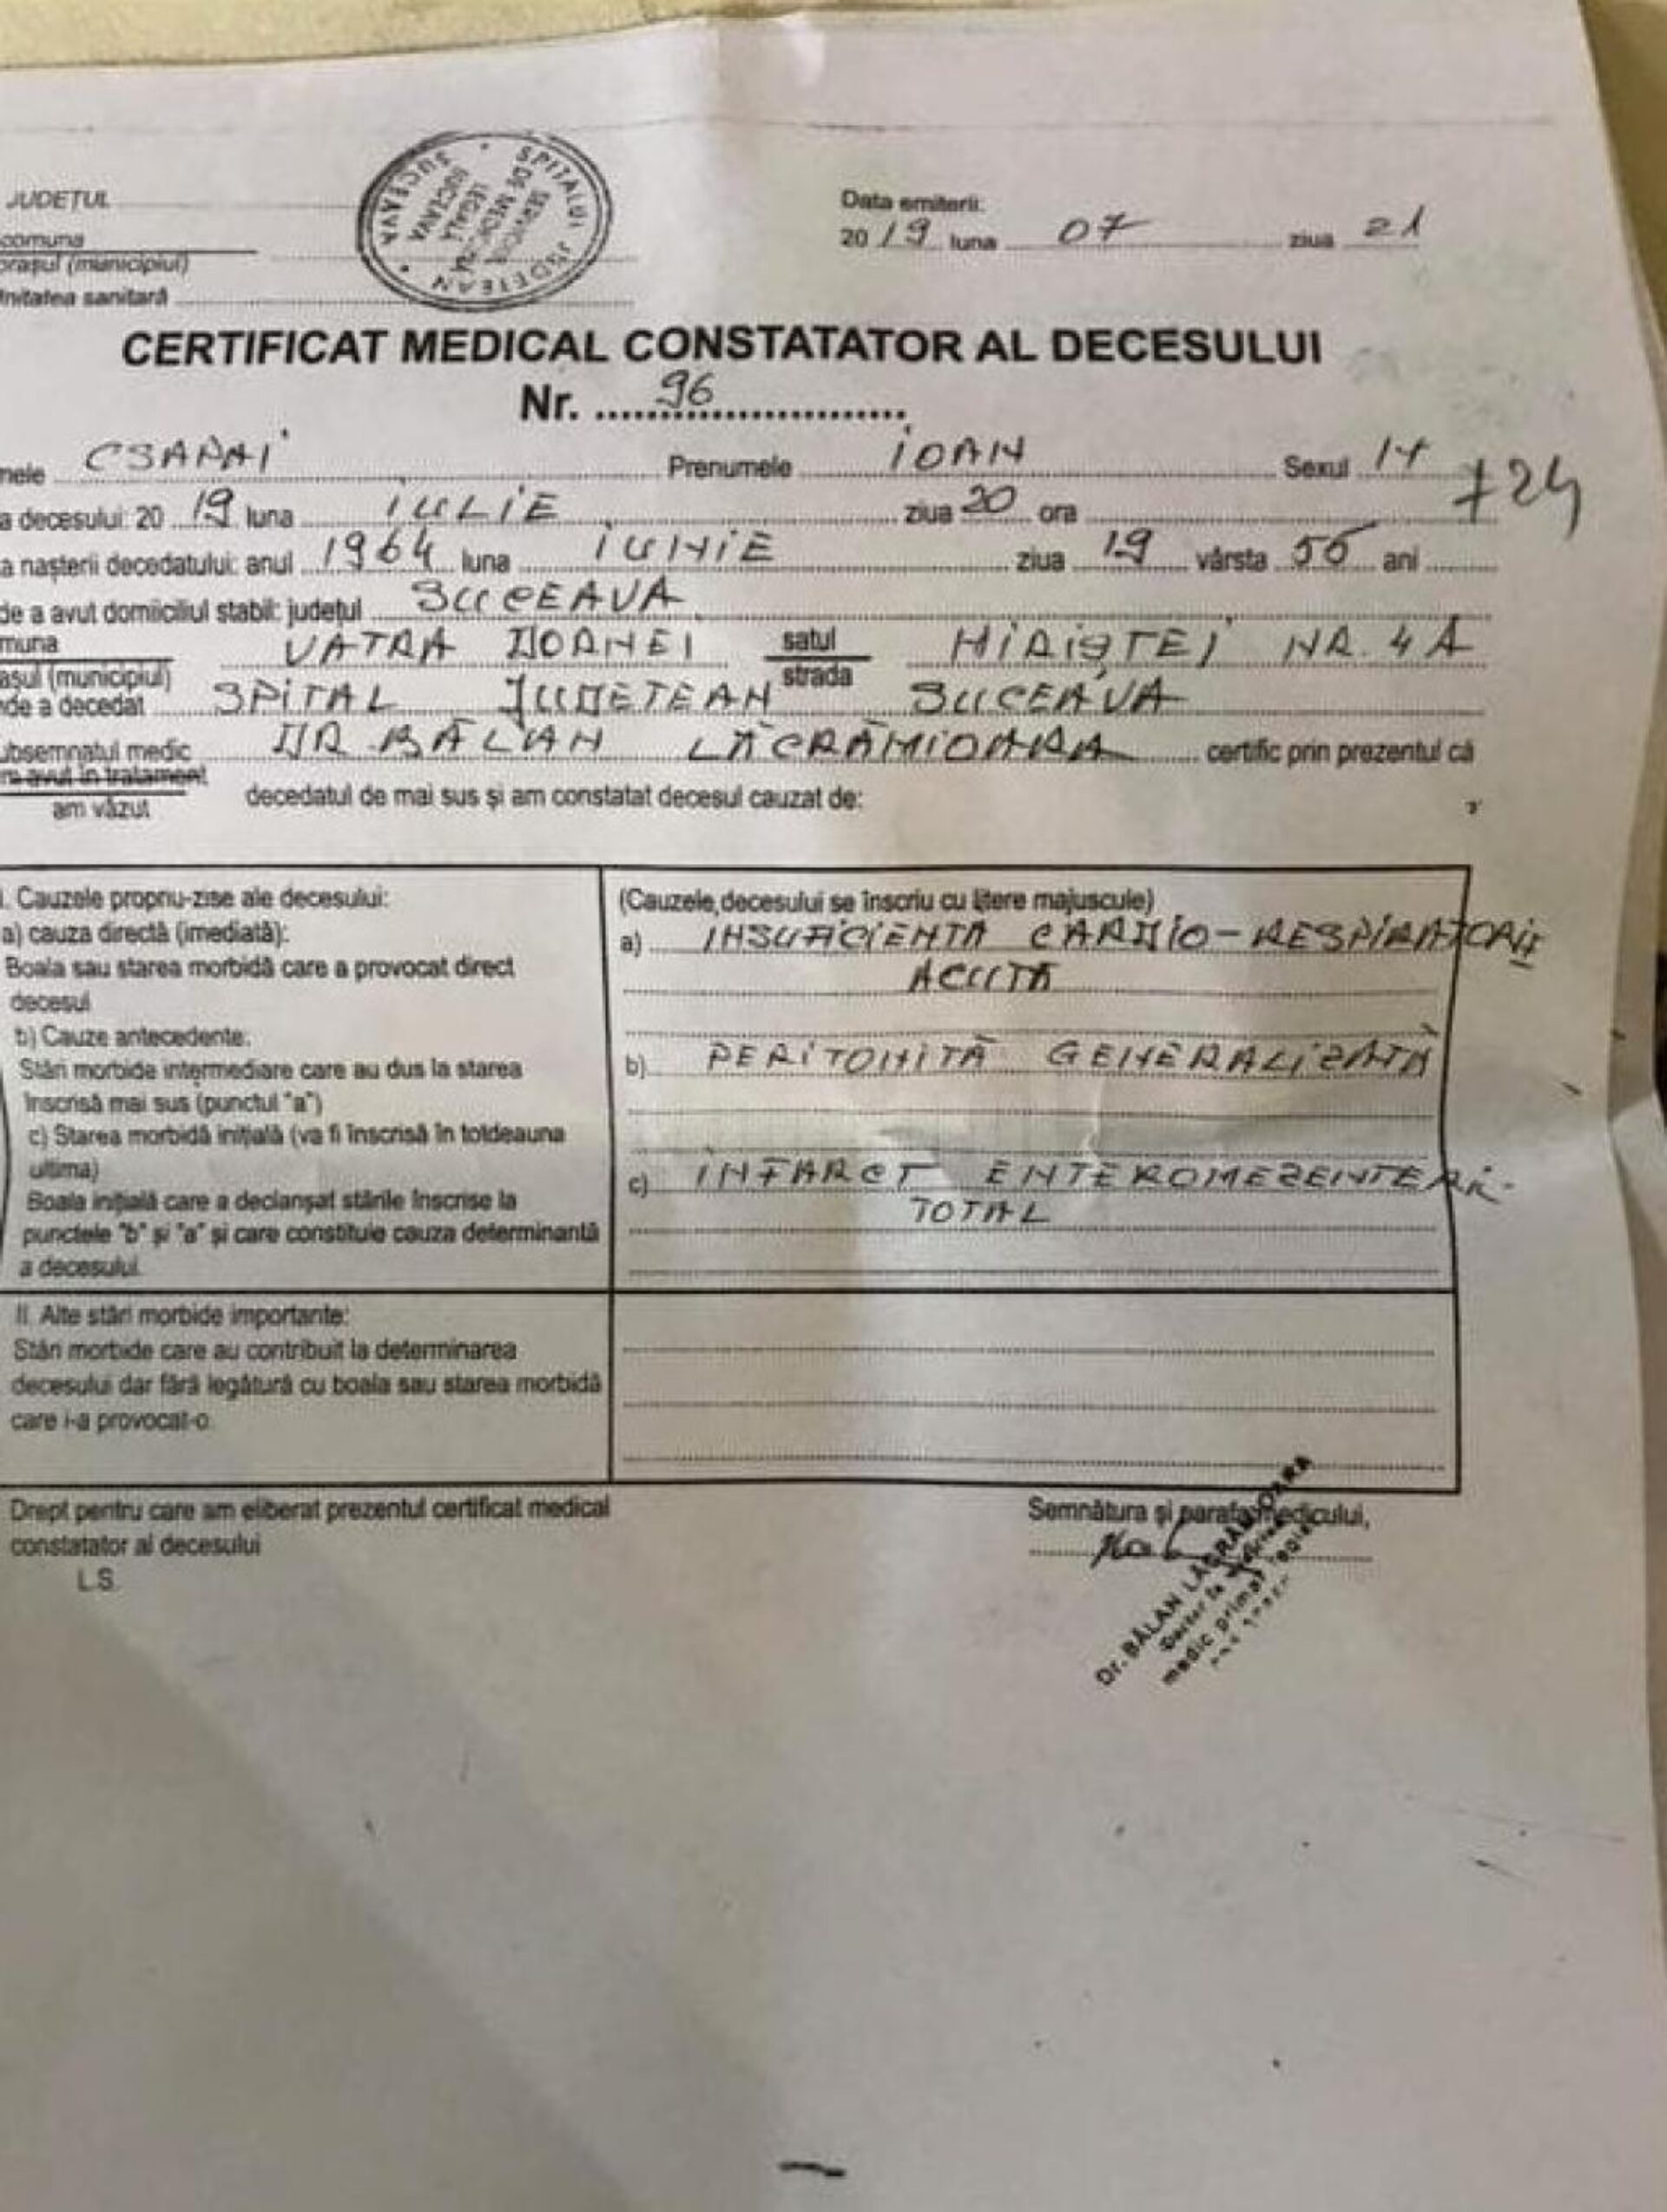 JUDEŢUL
Data emiterii:
comuna
2019 luna 07 ziua 21
oraşul (municipiul)
Unitatea sanitară
SPITALUL JUDETEAN SUCEAVA
SERVICIUL
DE MEDICINA
LEGALA
SUCEAVA
CERTIFICAT MEDICAL CONSTATATOR AL DECESULUI
Nr. 96
mele CSAPAI Prenumele IOAN Sexul M
724
a decesului: 2019 luna IULIE ziua 20 ora
a naşterii decedatului: anul 1964 luna IUNIE ziua 19 vârsta 55 ani
de a avut domiciliul stabil: judeţul SUCEAVA
muna VATRA DORNEI satul NR. 4 A
aşul (municipiul) strada
de a decedat SPITAL JUDETEAN SUCEAVA
ubsemnatul medic DR BĂLAN LĂCRĂMIOARA certific prin prezentul că
m avut în tratament
am văzut decedatul de mai sus şi am constatat decesul cauzat de:
I. Cauzele propriu-zise ale decesului:
a) cauza directă (imediată):
Boala sau starea morbidă care a provocat direct
decesul
b) Cauze antecedente:
Stări morbide intermediare care au dus la starea
înscrisă mai sus (punctul "a")
c) Starea morbidă iniţială (va fi înscrisă în totdeauna
ultima)
Boala iniţială care a declanşat stările înscrise la
punctele "b" şi "a" şi care constituie cauza determinantă
a decesului.
(Cauzele decesului se înscriu cu litere majuscule)
a) INSUFICIENTA CARDIO-RESPIRATORIE
ACUTA
b) PERITONITĂ GENERALIZATĂ
c) INFARCT ENTEROMEZENTERIC
TOTAL
II. Alte stări morbide importante:
Stări morbide care au contribuit la determinarea
decesului dar fără legătură cu boala sau starea morbidă
care i-a provocat-o.
Drept pentru care am eliberat prezentul certificat medical
constatator al decesului
L.S.
Semnătura şi parafa medicului,
Dr. BĂLAN LĂCRĂMIOARA
Doctor în medicină
medic primar legist